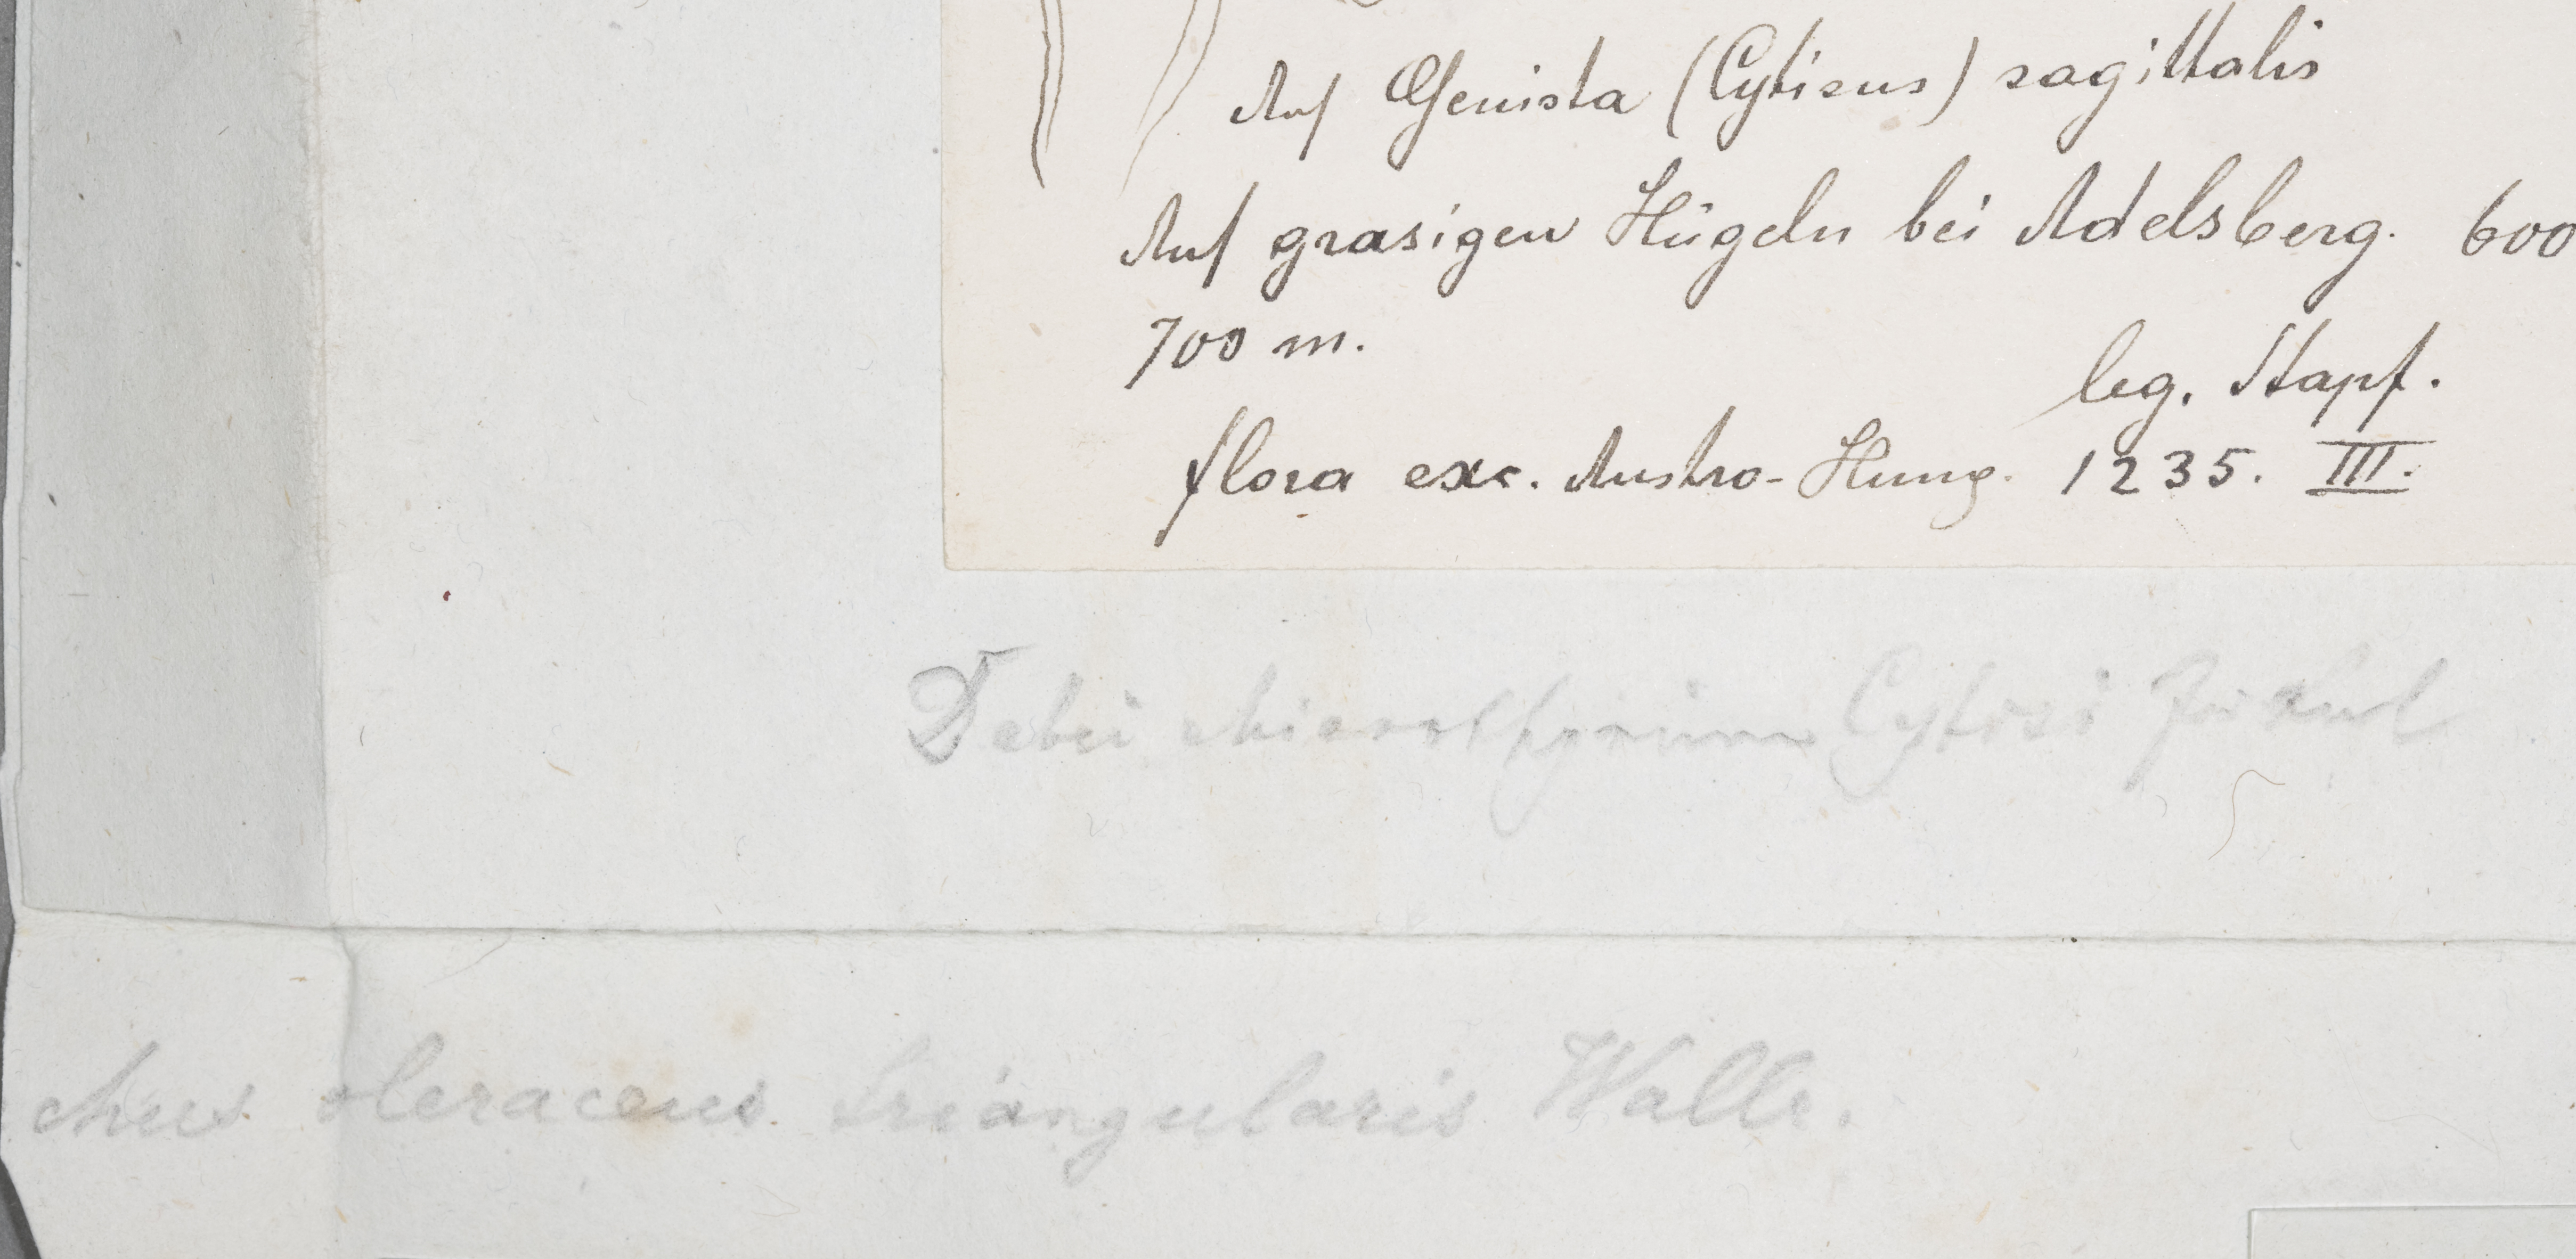 Auf Genista (Cytisus) sagittalis
Auf grasigen Hügeln bei Adelsberg. 600
700 m.
leg. Stapf.
flora exc. Austro-Hung. 1235. III.
Dabei Microthyrium Cytisi Fuckel
chus oleraceus triangularis Wallr.